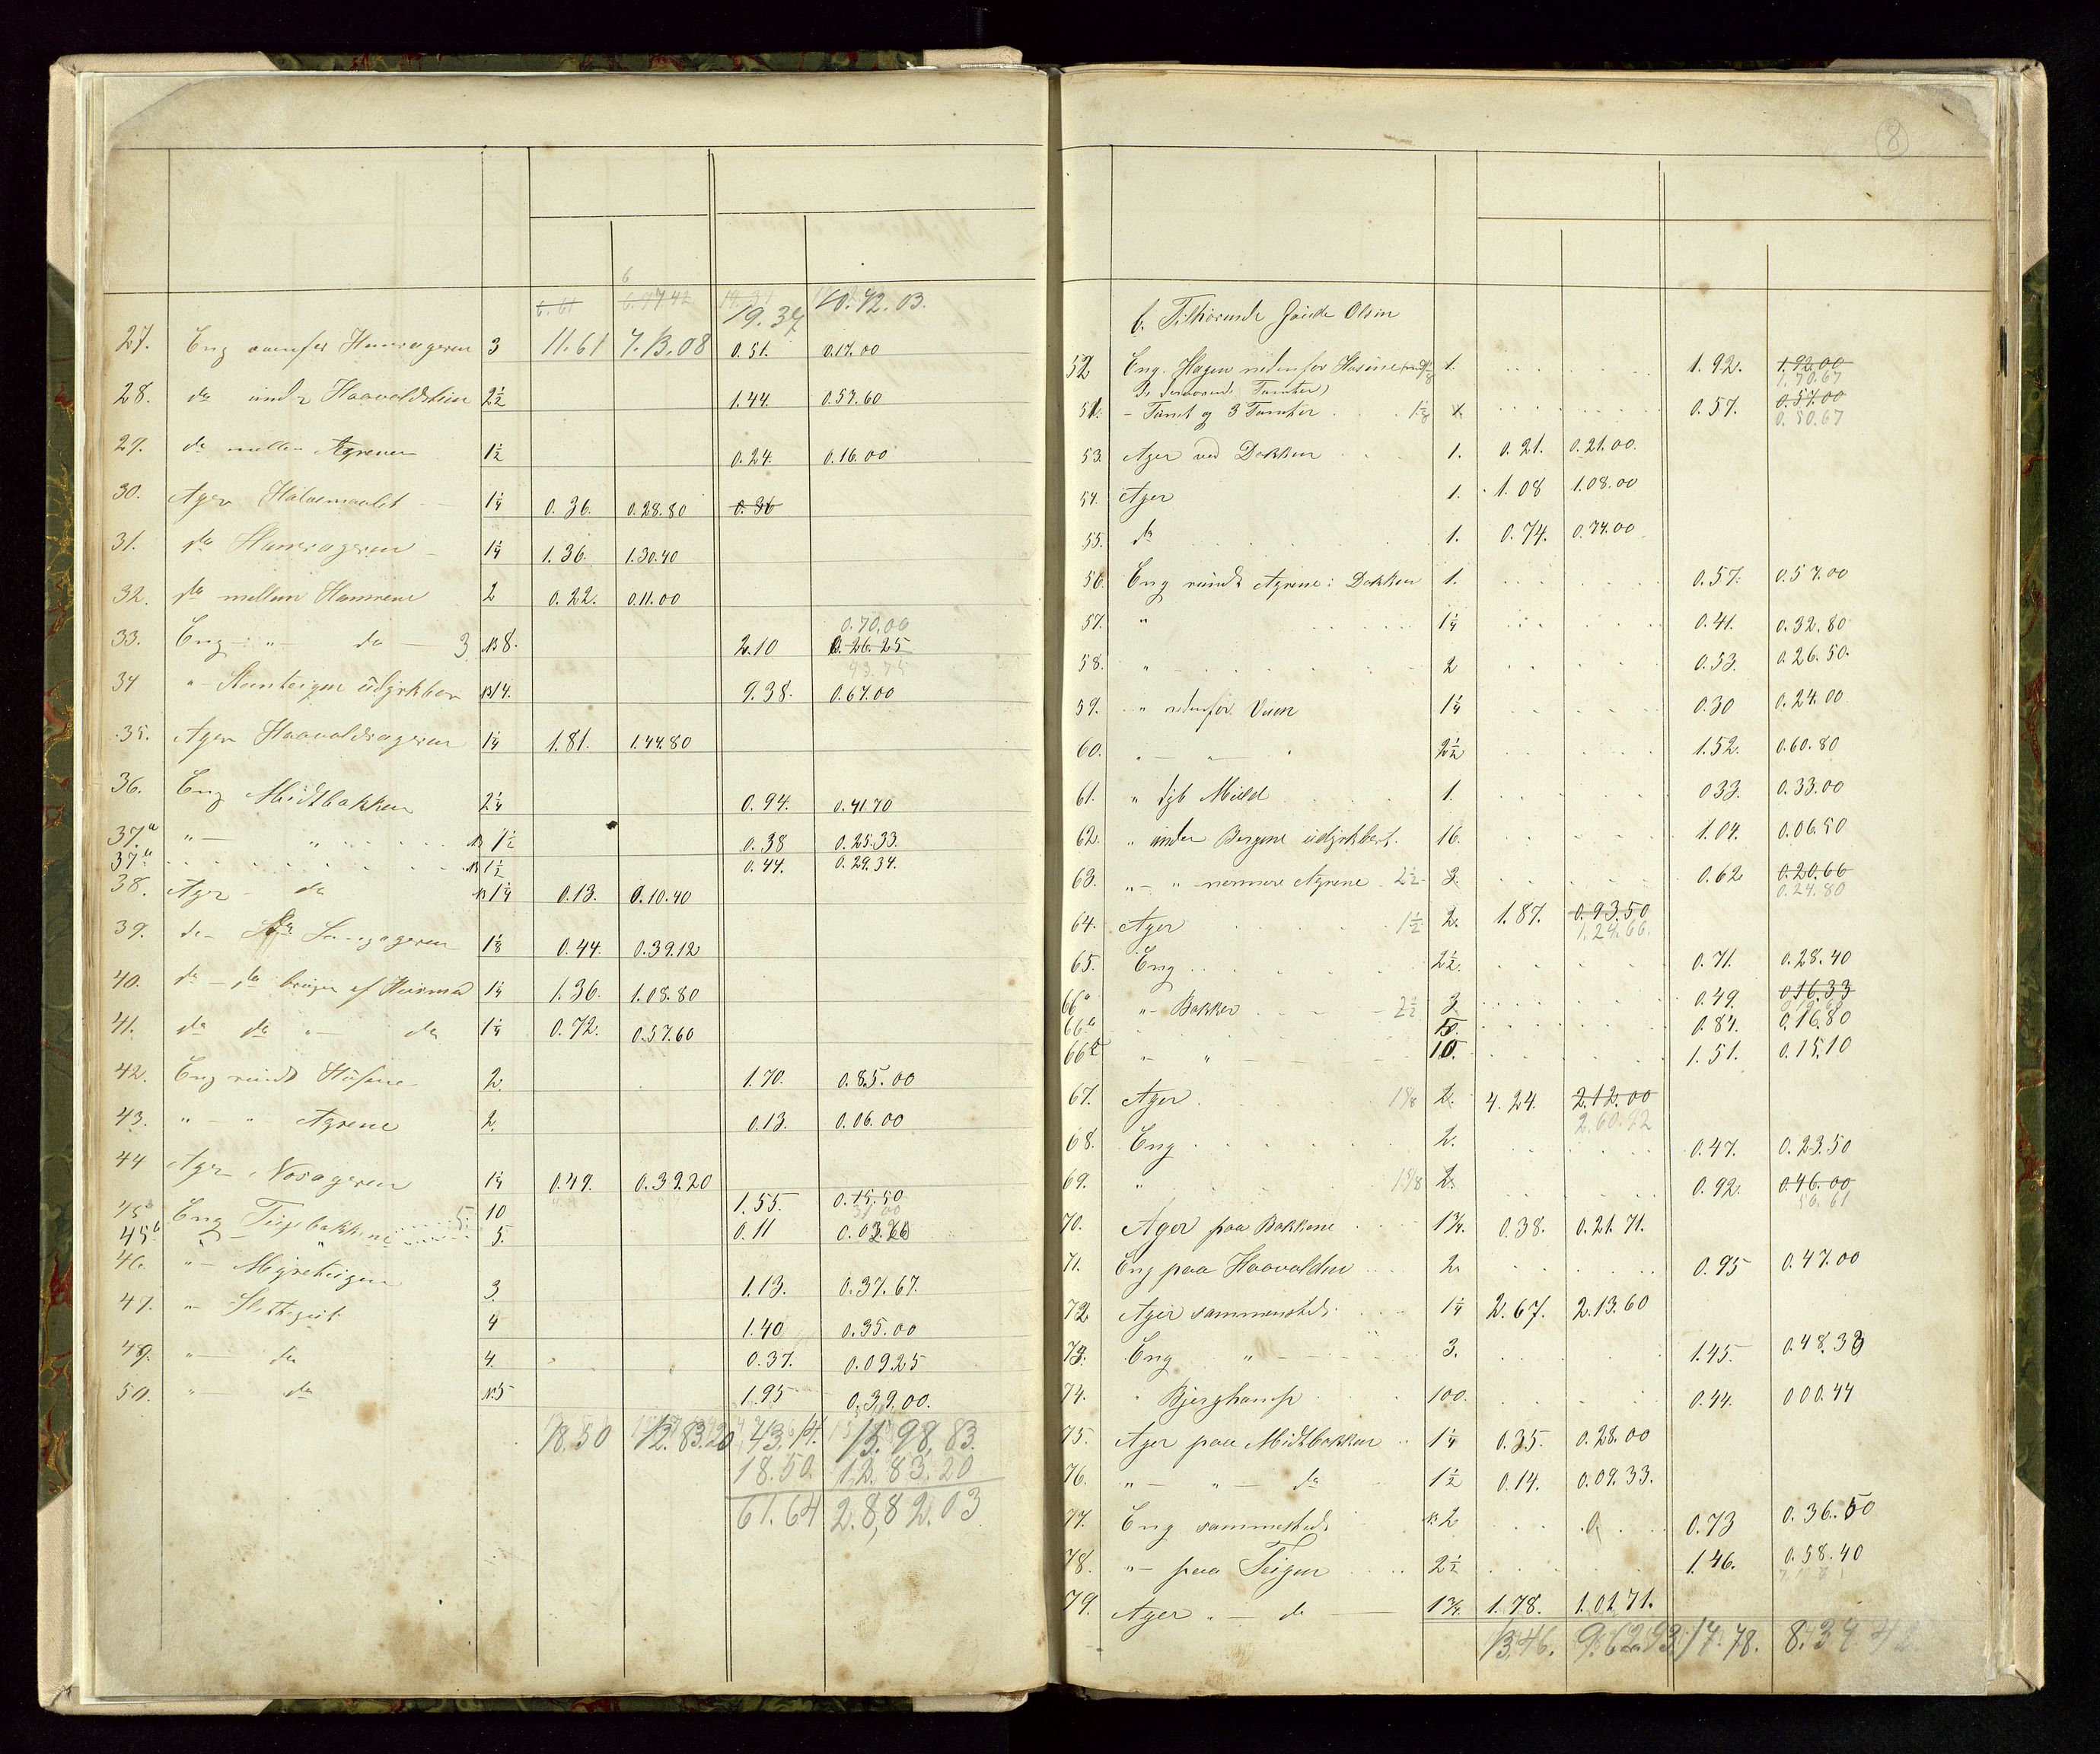 6.61 6.77.42 19.37 10.72.03.
6
19.37
27. Eng ovenfor Hamrageren 3 11.61 7.13.08 0.51. 0.17.00
28. do under Haavoldshein 2½ 1.44. 0.57.60
29. do mellem Agrenen 1½ 0.24. 0.16.00
30. Ager 1¼ 0.36. 0.28.80 0.36
31. do Hamrageren 1¼ 1.36. 1.30.40
32. do mellem Hamrene 2 0.22. 0.11.00
0.70.00
33. Eng " do 3 8. 2.10 0.26.25
43.75
34 " Steinteigen udyrkbar 14. 9.38. 0.67.00
35. Ager Haavoldsageren 1¼ 1.81. 1.44.80
36. Eng Midtbakken 2¼ 0.94. 0.41.70
37.a " " 1½ 0.38 0.25.33.
37.b 1½ 0.44. 0.29.34.
38. Ager do 1¼ 0.13. 0.10.40
39. do Langageren 1⅛ 0.44. 0.39.12
40. do do bruges af Huusmd 1¼ 1.36. 1.08.80
41. do do " do 1¼ 0.72. 0.57.60
42. Eng rundt Husene 2. 1.70. 0.85.00
43. " " Agrene 2. 0.13. 0.06.00
44 Ager Nosageren 1¼ 0.49. 0.39.20
45a Eng Teigebakkene 5. 10 1.55. 0.15.50
31.00
45b " " 5. 0.11 0.03.66
46. " Myrateigen 3. 1.13. 0.37.67.
47. " 4 1.40 0.35.00
49. " do 4. 0.37. 0.09.25
50. " do 5 1.95 0.39.00.
18.50 12.83.20 43.14. 15.98.83.
18.50. 12.83.20
61.64 28.82.03
8
b. Tilhørende Gunder Olsen
52. Eng. Hagen nedenfor Husene 1. 1.92. 1.92.00
1.70.67
Tomter)
51. - Tunet og 3 Tomter 1⅛ 1. 0.57. 0.57.00
0.50.67
53. Ager ved Dokken 1. 0.21. 0.21.00.
54. Ager 1. 1.08 1.08.00
55. do 1. 0.74. 0.74.00
56. Eng rundt Agrene i Dokken 1. 0.57. 0.57.00
57. " 1¼ 0.41. 0.32.80
58. " 2 0.53. 0.26.50.
59. " nedenfor Veien 1¼ 0.30 0.24.00
60. " " 2½ 1.52. 0.60.80
61. " dyb Muld 1. 033. 0.33.00
62. " under Bergene udyrkbart. 16. 1.04. 0.06.50
63. " " nermere Agrene 2½ 3. 0.62 0.20.66
0.24.80
64. Ager 1½ 2. 1.87. 0.93.50
1.24.66.
65. Eng 2½. 0.71. 0.28.40
66a " Bakker 2½ 3. 0.49. 0.16.33
66b 5. 0.84. 0.16.80
66c " " 10. 1.51. 0.15.10
67. Ager 1⅝ 2. 4.24. 2.12.00
2.60.92
68. Eng 2. 0.47. 0.23.50
69. " 1⅝ 2. 0.92. 0.46.00
56.61
70. Ager paa Bakkene 1¾. 0.38. 0.21.71.
71. Eng paa Haavolden 2. 0.95 0.47.00
72. Ager sammesteds 1¼ 2.67. 2.13.60
73. Eng " 3. 1.45. 0.48.33
74. " Bjerghamp 100. 0.44. 000.44
75. Ager paa Midtbakken 1¼ 0.35. 0.28.00
76. " " do 1½ 0.14. 0.09.33.
77. Eng sammesteds 2 0.73 0.36.50
78. " paa Teigen 2½ 1.46. 0.58.40
79. Ager " do 1¾. 1.78. 1.01.71.
13.46. 9.62.93 17.78. 8.34.42